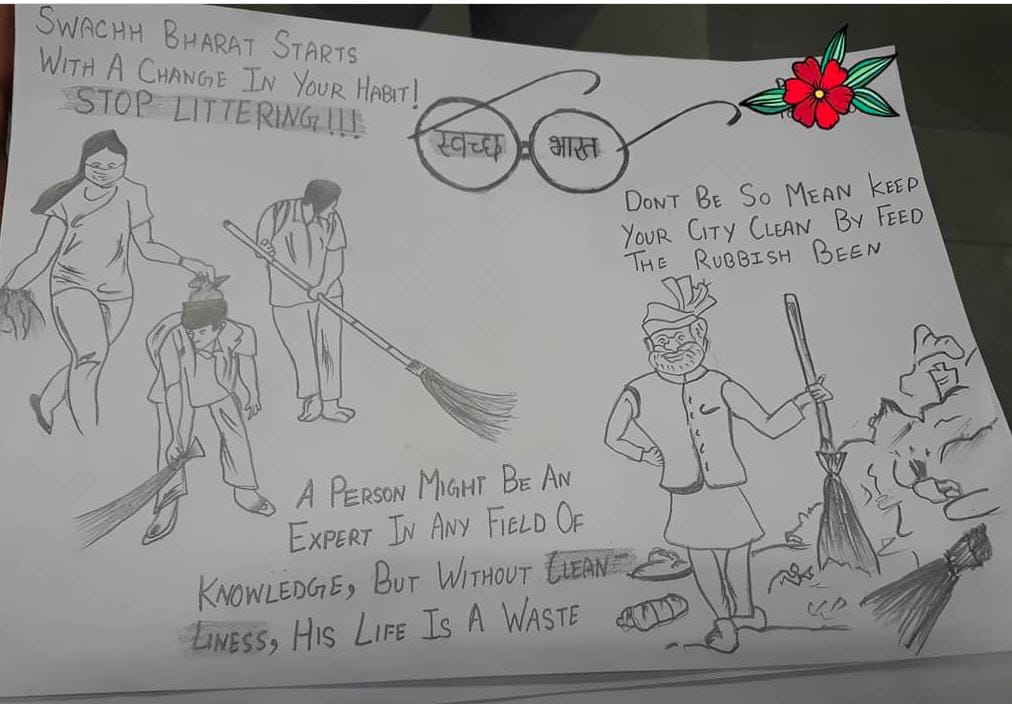 SWACHH BHARAT STARTS
WITH A CHANGE IN YOUR HABIT!
STOP LITTERING!!!
स्वच्छ भारत
DONT BE SO MEAN KEEP
YOUR CITY CLEAN BY FEED
THE RUBBISH BEEN
A PERSON MIGHT BE AN
EXPERT IN ANY FIELD OF
KNOWLEDGE, BUT WITHOUT CLEAN
LINESS, HIS LIFE IS A WASTE